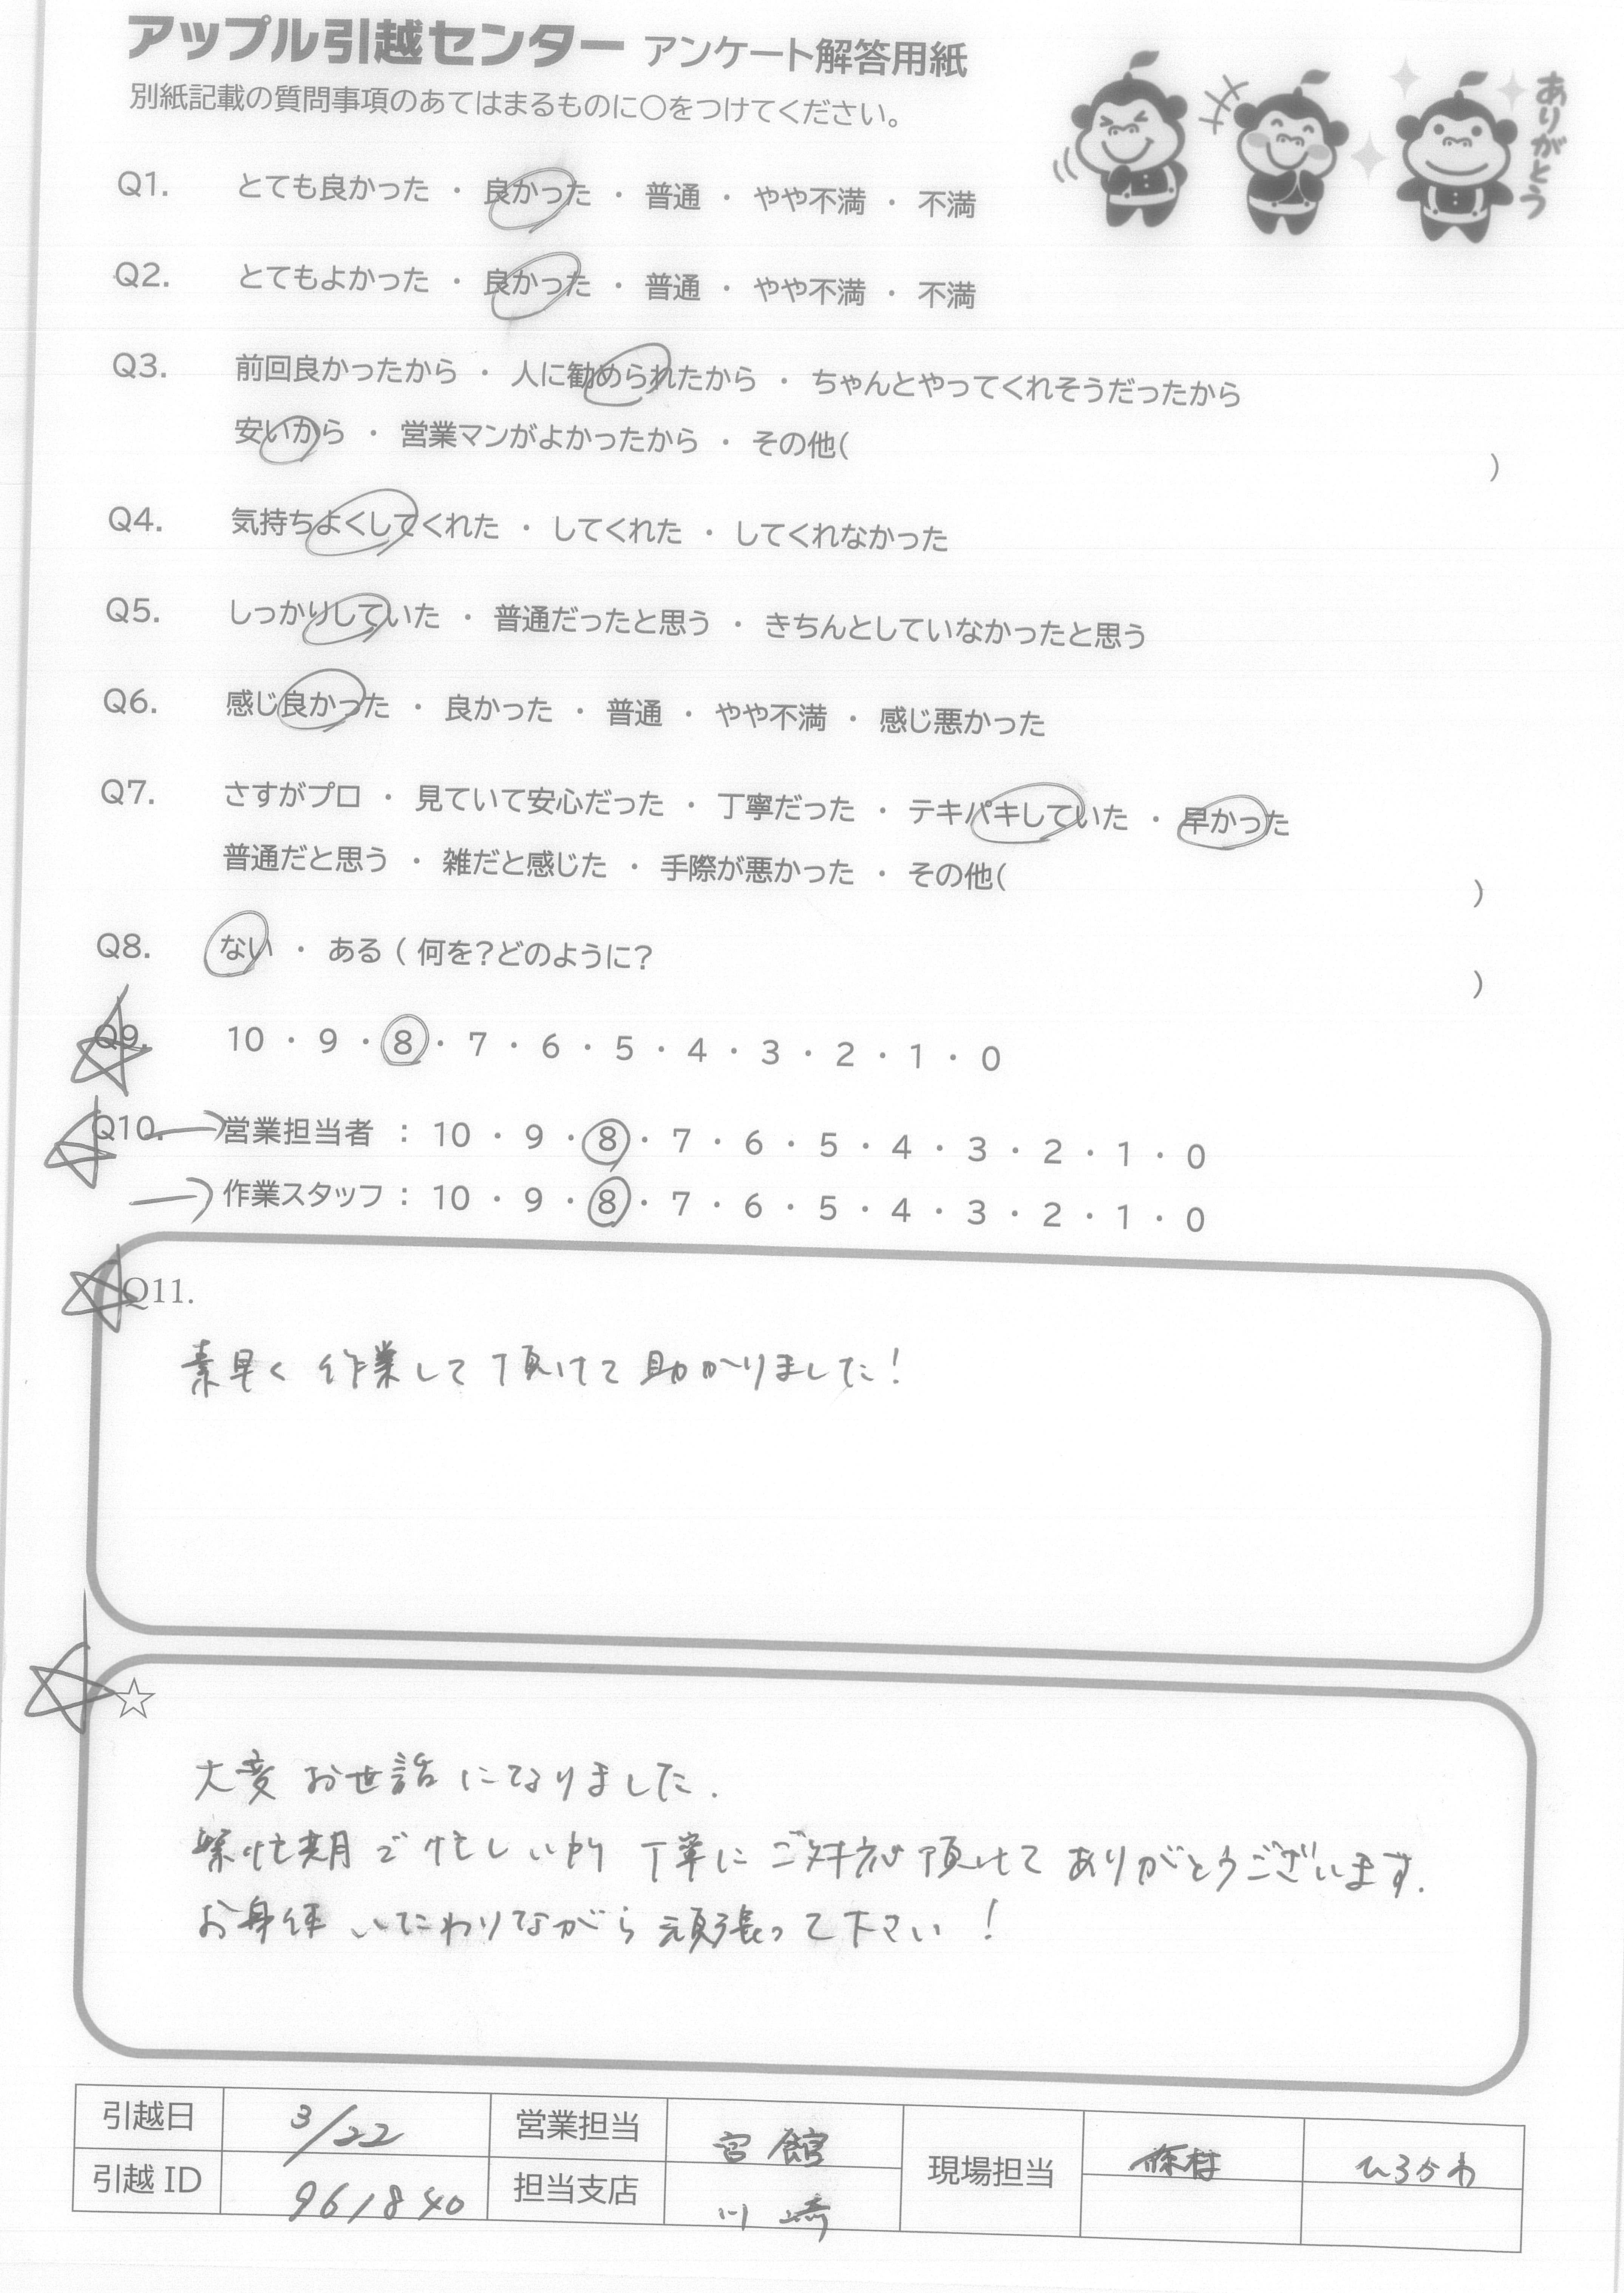 アップル引越センター アンケート解答用紙
別紙記載の質問事項のあてはまるものに○をつけてください。
ありがとう
Q1. とても良かった ・ 良かった ・ 普通 ・ やや不満 ・ 不満
Q2. とてもよかった ・ 良かった ・ 普通 ・ やや不満 ・ 不満
Q3. 前回良かったから ・ 人に勧められたから ・ ちゃんとやってくれそうだったから
安いから ・ 営業マンがよかったから ・ その他( )
Q4. 気持ちよくしてくれた ・ してくれた ・ してくれなかった
Q5. しっかりしていた ・ 普通だったと思う ・ きちんとしていなかったと思う
Q6. 感じ良かった ・ 良かった ・ 普通 ・ やや不満 ・ 感じ悪かった
Q7. さすがプロ ・ 見ていて安心だった ・ 丁寧だった ・ テキパキしていた ・ 早かった
普通だと思う ・ 雑だと感じた ・ 手際が悪かった ・ その他( )
Q8. ない ・ ある ( 何を?どのように? )
Q9. 10 ・ 9 ・ 8 ・ 7 ・ 6 ・ 5 ・ 4 ・ 3 ・ 2 ・ 1 ・ 0
Q10. 営業担当者 : 10 ・ 9 ・ 8 ・ 7 ・ 6 ・ 5 ・ 4 ・ 3 ・ 2 ・ 1 ・ 0
作業スタッフ : 10 ・ 9 ・ 8 ・ 7 ・ 6 ・ 5 ・ 4 ・ 3 ・ 2 ・ 1 ・ 0
Q11.
素早く作業して頂けて助かりました!
☆
大変お世話になりました.
繁忙期で忙しい所 丁寧にご対応頂けてありがとうございます.
お身体いたわりながら頑張って下さい!
引越日 3/22 営業担当 宮館 現場担当 ひろかわ
引越 ID 961840 担当支店 川崎